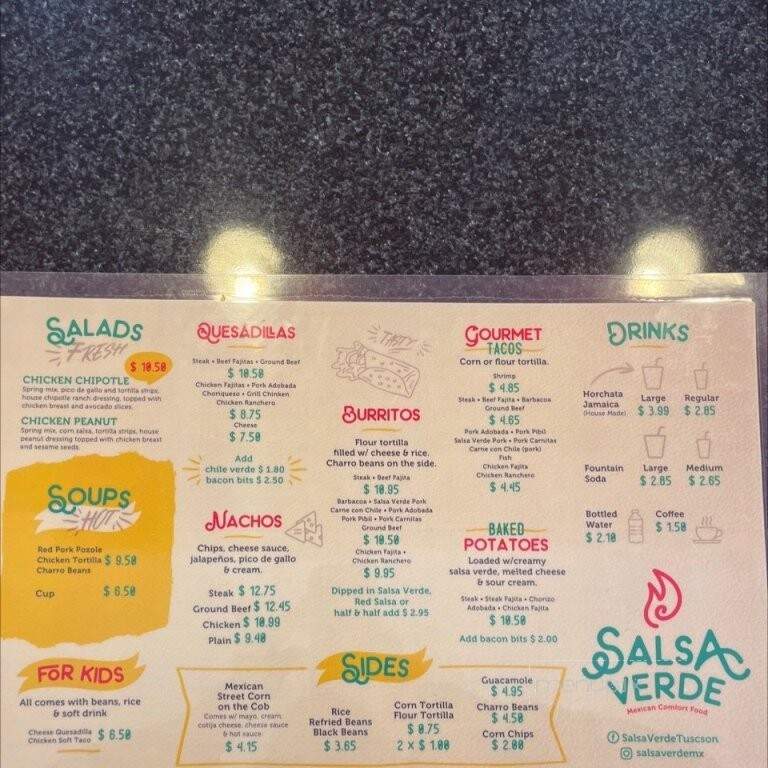 SALADS
FRESH
$ 10.50
CHICKEN CHIPOTLE
Spring mix, pico de gallo and tortilla strips,
house chipotle ranch dressing, topped with
chicken breast and avocado slices.
CHICKEN PEANUT
Spring mix, corn salsa, tortilla strips, house
peanut dressing topped with chicken breast
and sesame seeds.
SOUPS
HOT
Red Pork Pozole
Chicken Tortilla $ 9.50
Charro Beans
Cup $ 6.50
FOR KIDS
All comes with beans, rice
& soft drink
Cheese Quesadilla
Chicken Soft Taco $ 6.50
QUESADILLAS
Steak • Beef Fajitas • Ground Beef
$ 10.50
Chicken Fajitas • Pork Adobada
Choriqueso • Grill Chinken
Chicken Ranchero
$ 8.75
Cheese
$ 7.50
Add
chile verde $ 1.80
bacon bits $ 2.50
NACHOS
Chips, cheese sauce,
jalapeños, pico de gallo
& cream.
Steak $ 12.75
Ground Beef $ 12.45
Chicken $ 10.99
Plain $ 9.40
TASTY
BURRITOS
Flour tortilla
filled w/ cheese & rice.
Charro beans on the side.
Steak • Beef Fajita
$ 10.95
Barbacoa • Salsa Verde Pork
Carne con Chile • Pork Adobada
Pork Pibil • Pork Carnitas
Ground Beef
$ 10.50
Chicken Fajita •
Chicken Ranchero
$ 9.95
Dipped in Salsa Verde,
Red Salsa or
half & half add $ 2.95
GOURMET
TACOS
Corn or flour tortilla.
Shrimp
$ 4.85
Steak • Beef Fajita • Barbacoa
Ground Beef
$ 4.65
Pork Adobada • Pork Pibil
Salsa Verde Pork • Pork Carnitas
Carne con Chile (pork)
Fish
Chicken Fajita
Chicken Ranchero
$ 4.45
BAKED
POTATOES
Loaded w/creamy
salsa verde, melted cheese
& sour cream.
Steak • Steak Fajita • Chorizo
Adobada • Chicken Fajita
$ 10.50
Add bacon bits $ 2.00
DRINKS
Horchata
Jamaica
(House Made)
Large
$ 3.99
Regular
$ 2.85
Fountain
Soda
Large
$ 2.85
Medium
$ 2.65
Bottled
Water
$ 2.10
Coffee
$ 1.50
SIDES
Mexican
Street Corn
on the Cob
Comes w/ mayo, cream,
cotija cheese, cheese sauce
& hot sauce
$ 4.15
Rice
Refried Beans
Black Beans
$ 3.65
Corn Tortilla
Flour Tortilla
$ 0.75
2 x $ 1.00
Guacamole
$ 4.95
Charro Beans
$ 4.50
Corn Chips
$ 2.00
SALSA
VERDE
Mexican Comfort Food
SalsaVerdeTuscson
salsaverdemx